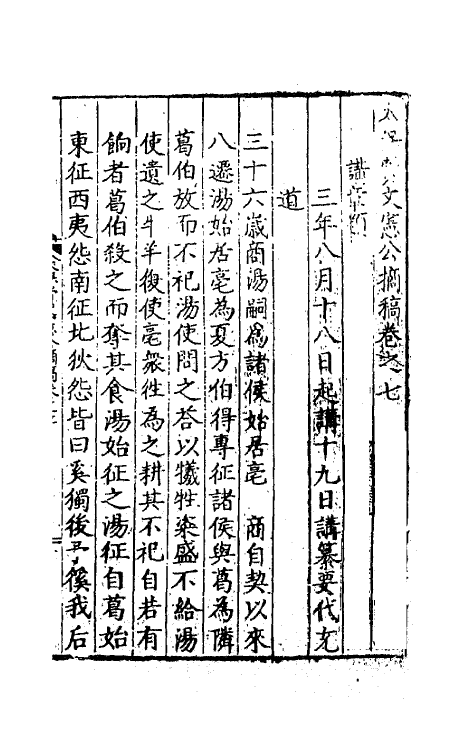 文憲公摘稿卷之七
講章類
三年八月十八日起講十九日講纂要代充
道
三十六歲商湯嗣為諸侯始居亳　商自契以來
八遷湯始居亳為夏方伯得專征諸侯與葛為隣
葛伯放而不祀湯使問之荅以犧牲粢盛不給湯
使遺之牛羊復使亳衆徃為之耕其不祀自若有
餉者葛伯殺之而奪其食湯始征之湯征自葛始
東征西夷怨南征北狄怨皆曰奚獨後予徯我后